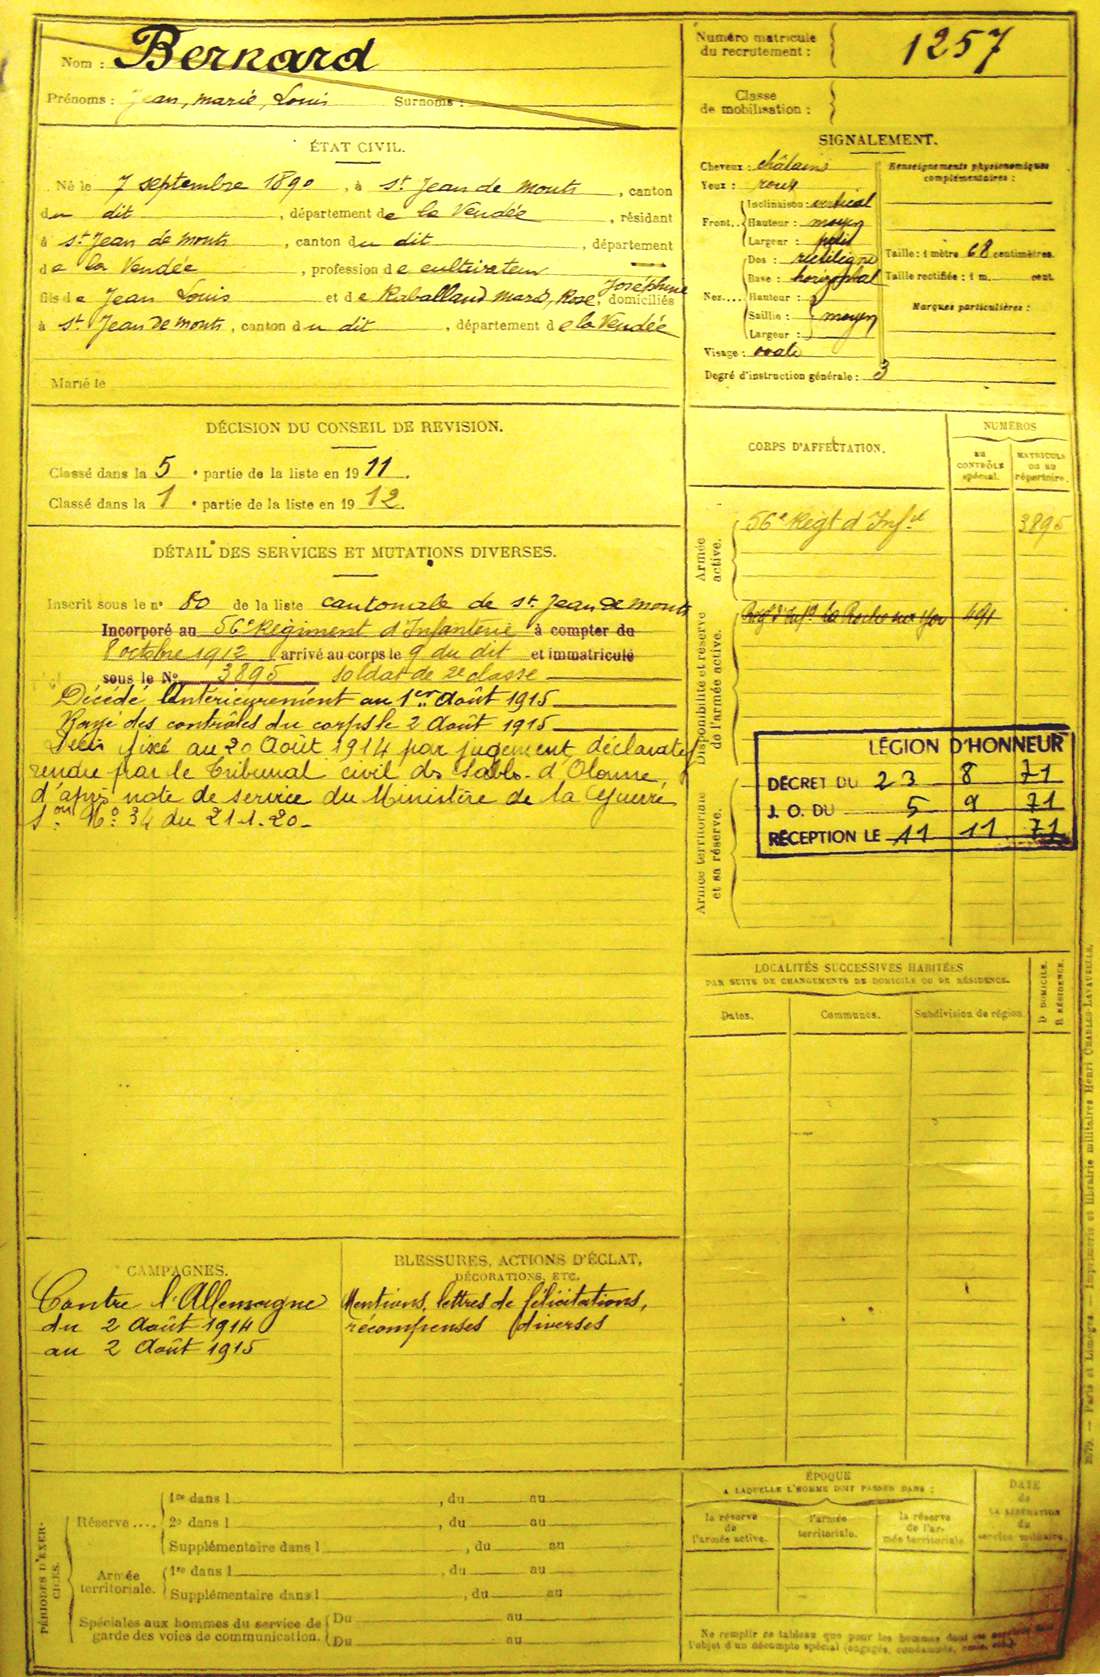 Nom : Bernard
Prénoms : Jean, marie, Louis Surnoms :
Numéro matricule du recrutement : 1257
Classe de mobilisation :
ÉTAT CIVIL.
Né le 7 septembre 1890, à St Jean de Monts, canton
du dit, département de la Vendée, résidant
à St Jean de Monts, canton du dit, département
de la Vendée, profession de cultivateur
fils de Jean Louis et de Raballand Marie, Rose, Joséphine domiciliés
à St Jean de Monts, canton du dit, département de la Vendée
Marié le
SIGNALEMENT.
Cheveux : châtains
Yeux : roux
Front.. Inclinaison : vertical
Hauteur : moyen
Largeur : petit
Nez.... Dos : rectiligne
Base : horizontal
Hauteur :
Saillie : moyen
Largeur :
Visage : ovale
Degré d'instruction générale : 3
Renseignements physionomiques complémentaires :
Taille : 1 mètre 68 centimètres.
Taille rectifiée : 1 m. cent.
Marques particulières :
DÉCISION DU CONSEIL DE REVISION.
Classé dans la 5e partie de la liste en 1911.
Classé dans la 1e partie de la liste en 1912.
DÉTAIL DES SERVICES ET MUTATIONS DIVERSES.
Inscrit sous le n° 80 de la liste cantonale de St Jean de Monts
Incorporé au 56e Régiment d'Infanterie à compter du
8 octobre 1912 arrivé au corps le 9 du dit et immatriculé
sous le N° 3895 soldat de 2e classe
Décédé antérieurement au 1er Août 1915
Rayé des contrôles du corps le 2 Août 1915
Décès fixé au 20 Août 1914 par jugement déclaratif
rendu par le Tribunal civil des Sables-d'Olonne,
d'après note de service du Ministère de la Guerre
N° 34 du 21.1.20.
CORPS D'AFFECTATION.
NUMÉROS
AU CONTRÔLE spécial.
MATRICULE OU AU répertoire.
Armée active.
56e Régt d'Infie 3895
Disponibilité et réserve de l'armée active.
Regt d'Infie La Roche sur Yon 491
Armée territoriale et sa réserve.
LÉGION D'HONNEUR
DÉCRET DU 23 8 71
J. O. DU 5 9 71
RÉCEPTION LE 11 11 71
LOCALITÉS SUCCESSIVES HABITÉES
PAR SUITE DE CHANGEMENTS DE DOMICILE OU DE RÉSIDENCE.
Dates. Communes. Subdivision de région. D. DOMICILE. R. RÉSIDENCE.
CAMPAGNES.
Contre l'Allemagne
du 2 Août 1914
au 2 Août 1915
BLESSURES, ACTIONS D'ÉCLAT,
DÉCORATIONS, ETC.
Mentions, lettres de félicitations,
récompenses diverses
PÉRIODES D'EXERCICES.
Réserve .... 1re dans l , du au
2e dans l , du au
Supplémentaire dans l , du au
Armée territoriale. 1re dans l , du au
Supplémentaire dans l , du au
Spéciales aux hommes du service de garde des voies de communication. Du au
Du au
ÉPOQUE
A LAQUELLE L'HOMME DOIT PASSER DANS :
la réserve de l'armée active.
l'armée territoriale.
la réserve de l'armée territoriale.
DATE de LA LIBÉRATION du service militaire.
Ne remplir ce tableau que pour les hommes dont les services sont
l'objet d'un décompte spécial (engagés, condamnés, omis, etc.)
Paris et Limoges. — Imprimerie et librairie militaires Henri CHARLES-LAVAUZELLE.